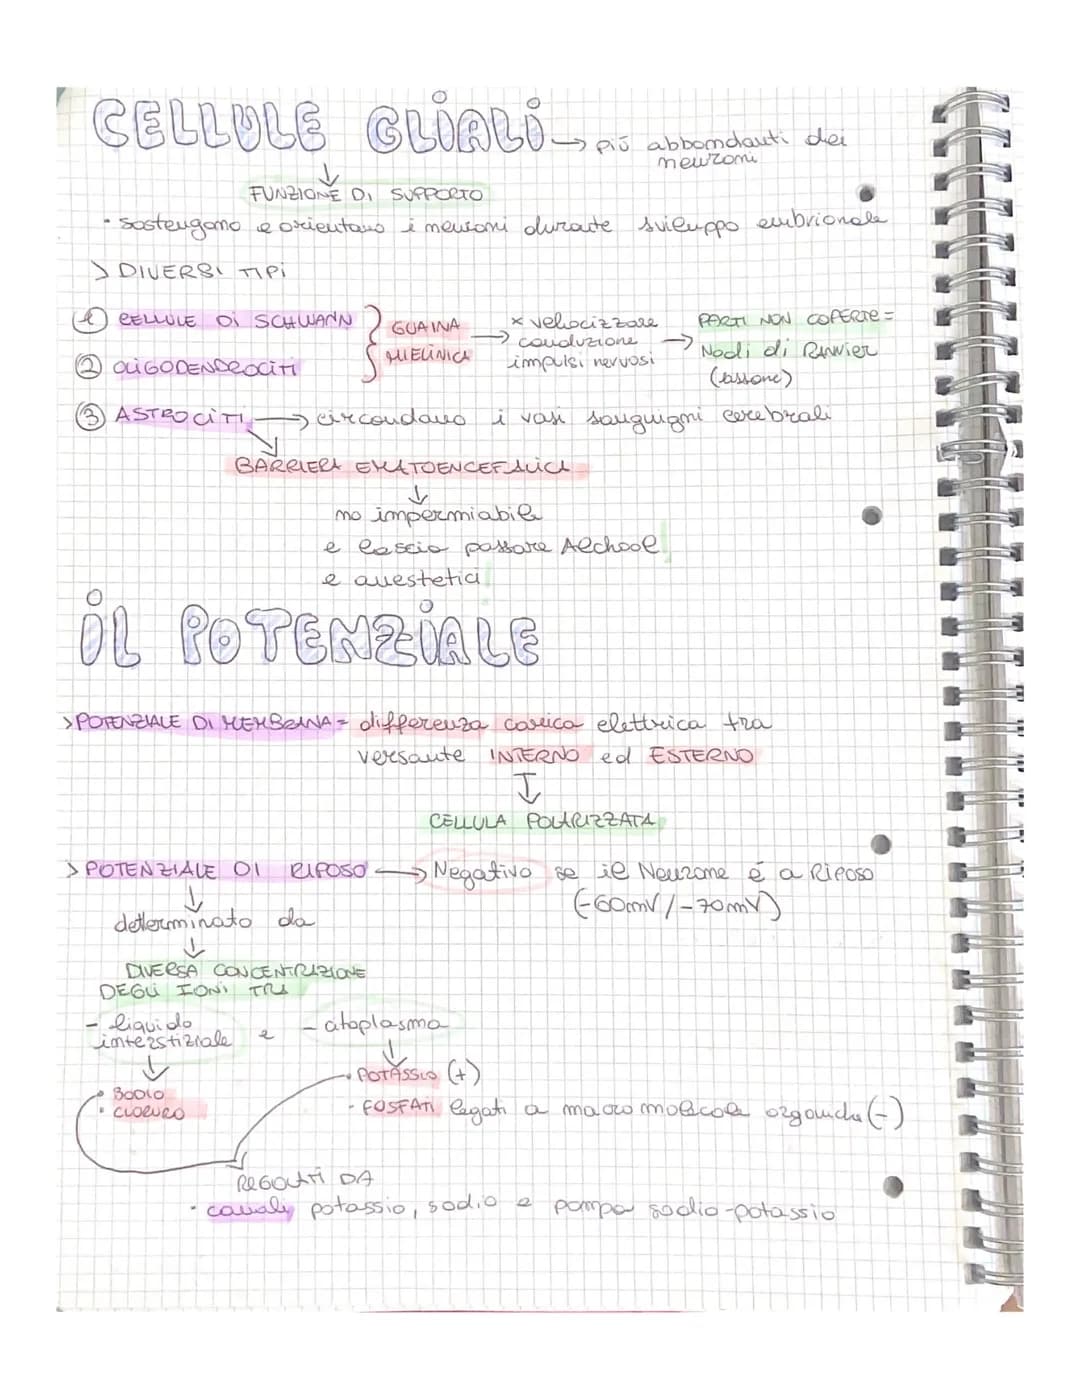 CELLULE GLIALI → più abbondanti dei
neuroni
↓
FUNZIONE DI SUPPORTO
• sostengono e orientano i neuroni durante sviluppo embrionale
> DIVERSI TIPI
① CELLULE DI SCHWANN
② OLIGODENDROCITI
} GUAINA
MIELINICA
→ x velocizzare
conduzione
impulsi nervosi
→ PARTI NON COPERTE =
Nodi di Ranvier
(assone)
③ ASTROCITI → circondano i vasi sanguigni cerebrali
BARRIERA EMATOENCEFALICA
↓
no impermiabile
e lascia passare Alchool!
e anestetici!
IL POTENZIALE
> POTENZIALE DI MEMBRANA = differenza carica elettrica tra
versante INTERNO ed ESTERNO
↓
CELLULA POLARIZZATA
> POTENZIALE DI RIPOSO → Negativo se il Neurone é a Riposo
(-60mV/-70mV)
↓
determinato da
↓
DIVERSA CONCENTRAZIONE
DEGLI IONI TRA
- liquido
interstiziale
e
- citoplasma
↓
• SODIO
• CLORURO
↓
• POTASSIO (+)
- FOSFATI legati a macromolecole organiche (-)
REGOLATI DA
• canali potassio, sodio e pompa sodio-potassio